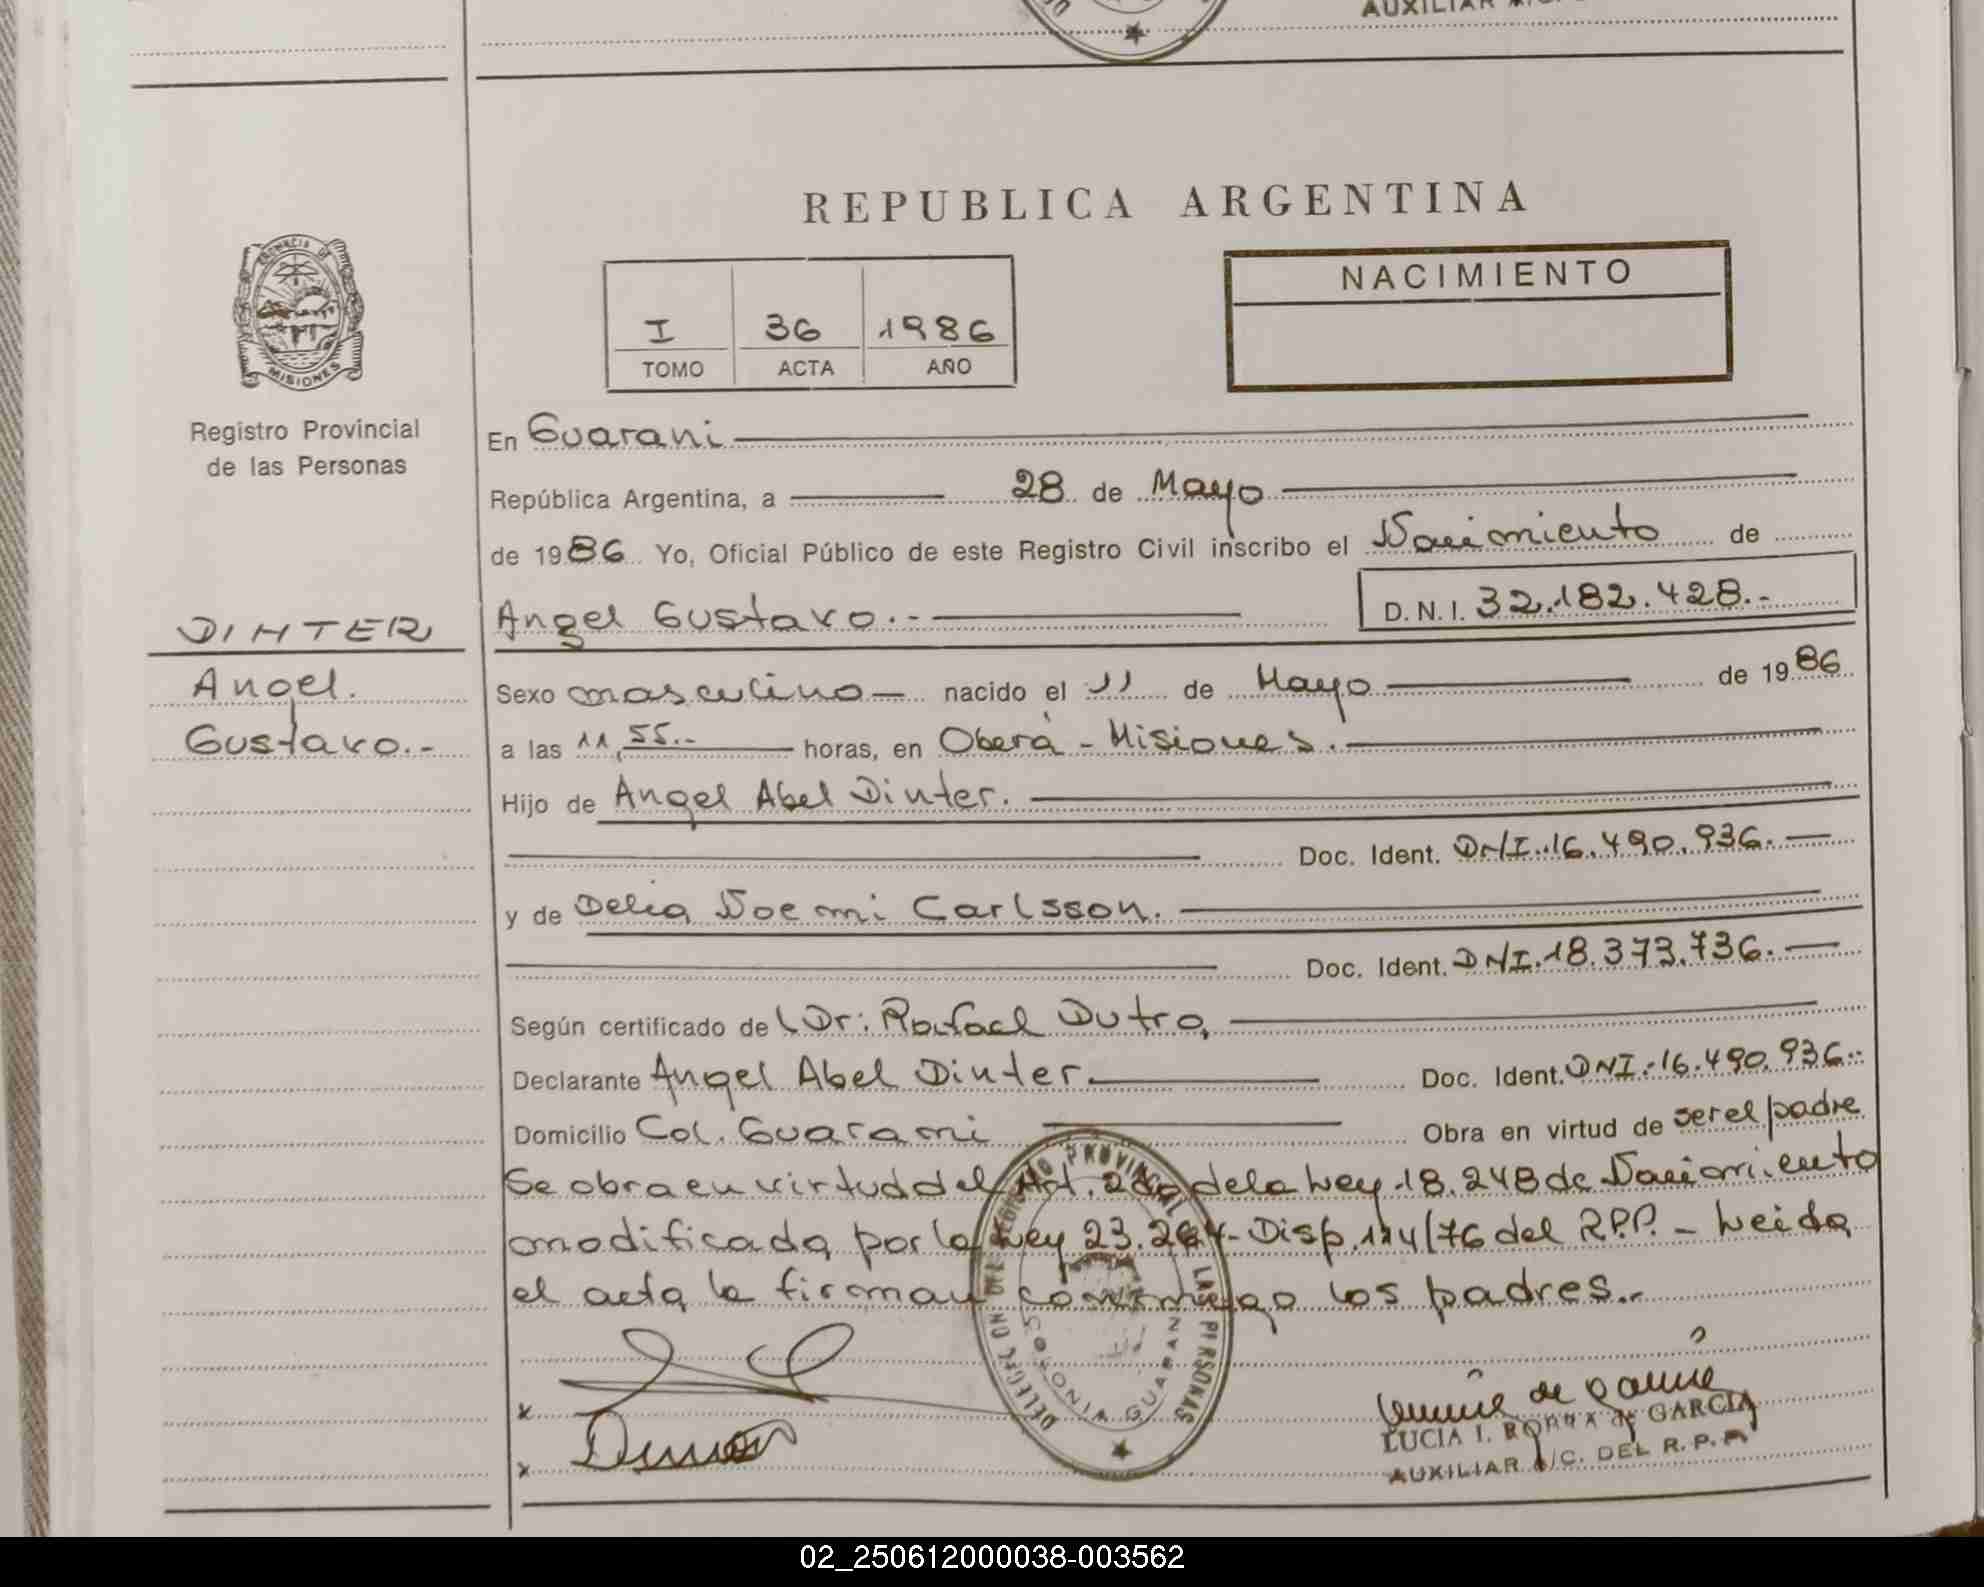 AUXILIAR
REPUBLICA ARGENTINA
PROVINCIA DE
MISIONES
NACIMIENTO
I 36 1986
TOMO ACTA AÑO
Registro Provincial
de las Personas
En Guarani
República Argentina, a 28 de Mayo
de 1986 Yo, Oficial Público de este Registro Civil inscribo el Nacimiento de
DINTER
Angel Gustavo.- D.N.I. 32.182.428.-
Angel.
Gustavo.-
Sexo masculino nacido el 11 de Mayo de 1986
a las 11,55.- horas, en Oberá - Misiones.
Hijo de Angel Abel Dinter.
Doc. Ident. DNI.16.490.936.
y de Delia Noemi Carlsson.
Doc. Ident. DNI.18.373.736.
Según certificado de Dr: Rafael Dutra
Declarante Angel Abel Dinter. Doc. Ident. DNI.16.490.936.-
Domicilio Col. Guarani Obra en virtud de ser el padre
Se obra en virtud del Art. 2do de la Ley 18.248 de Nacimiento
modificada por la Ley 23.264- Disp. 114/76 del R.P.P. - Leida
el acta la firman conmigo los padres..
DELEGACION DEL REGISTRO PROVINCIAL DE LAS PERSONAS
COLONIA GUARANI
x
x
LUCIA I. de GARCIA
AUXILIAR A/C. DEL R.P.P.
02_250612000038-003562